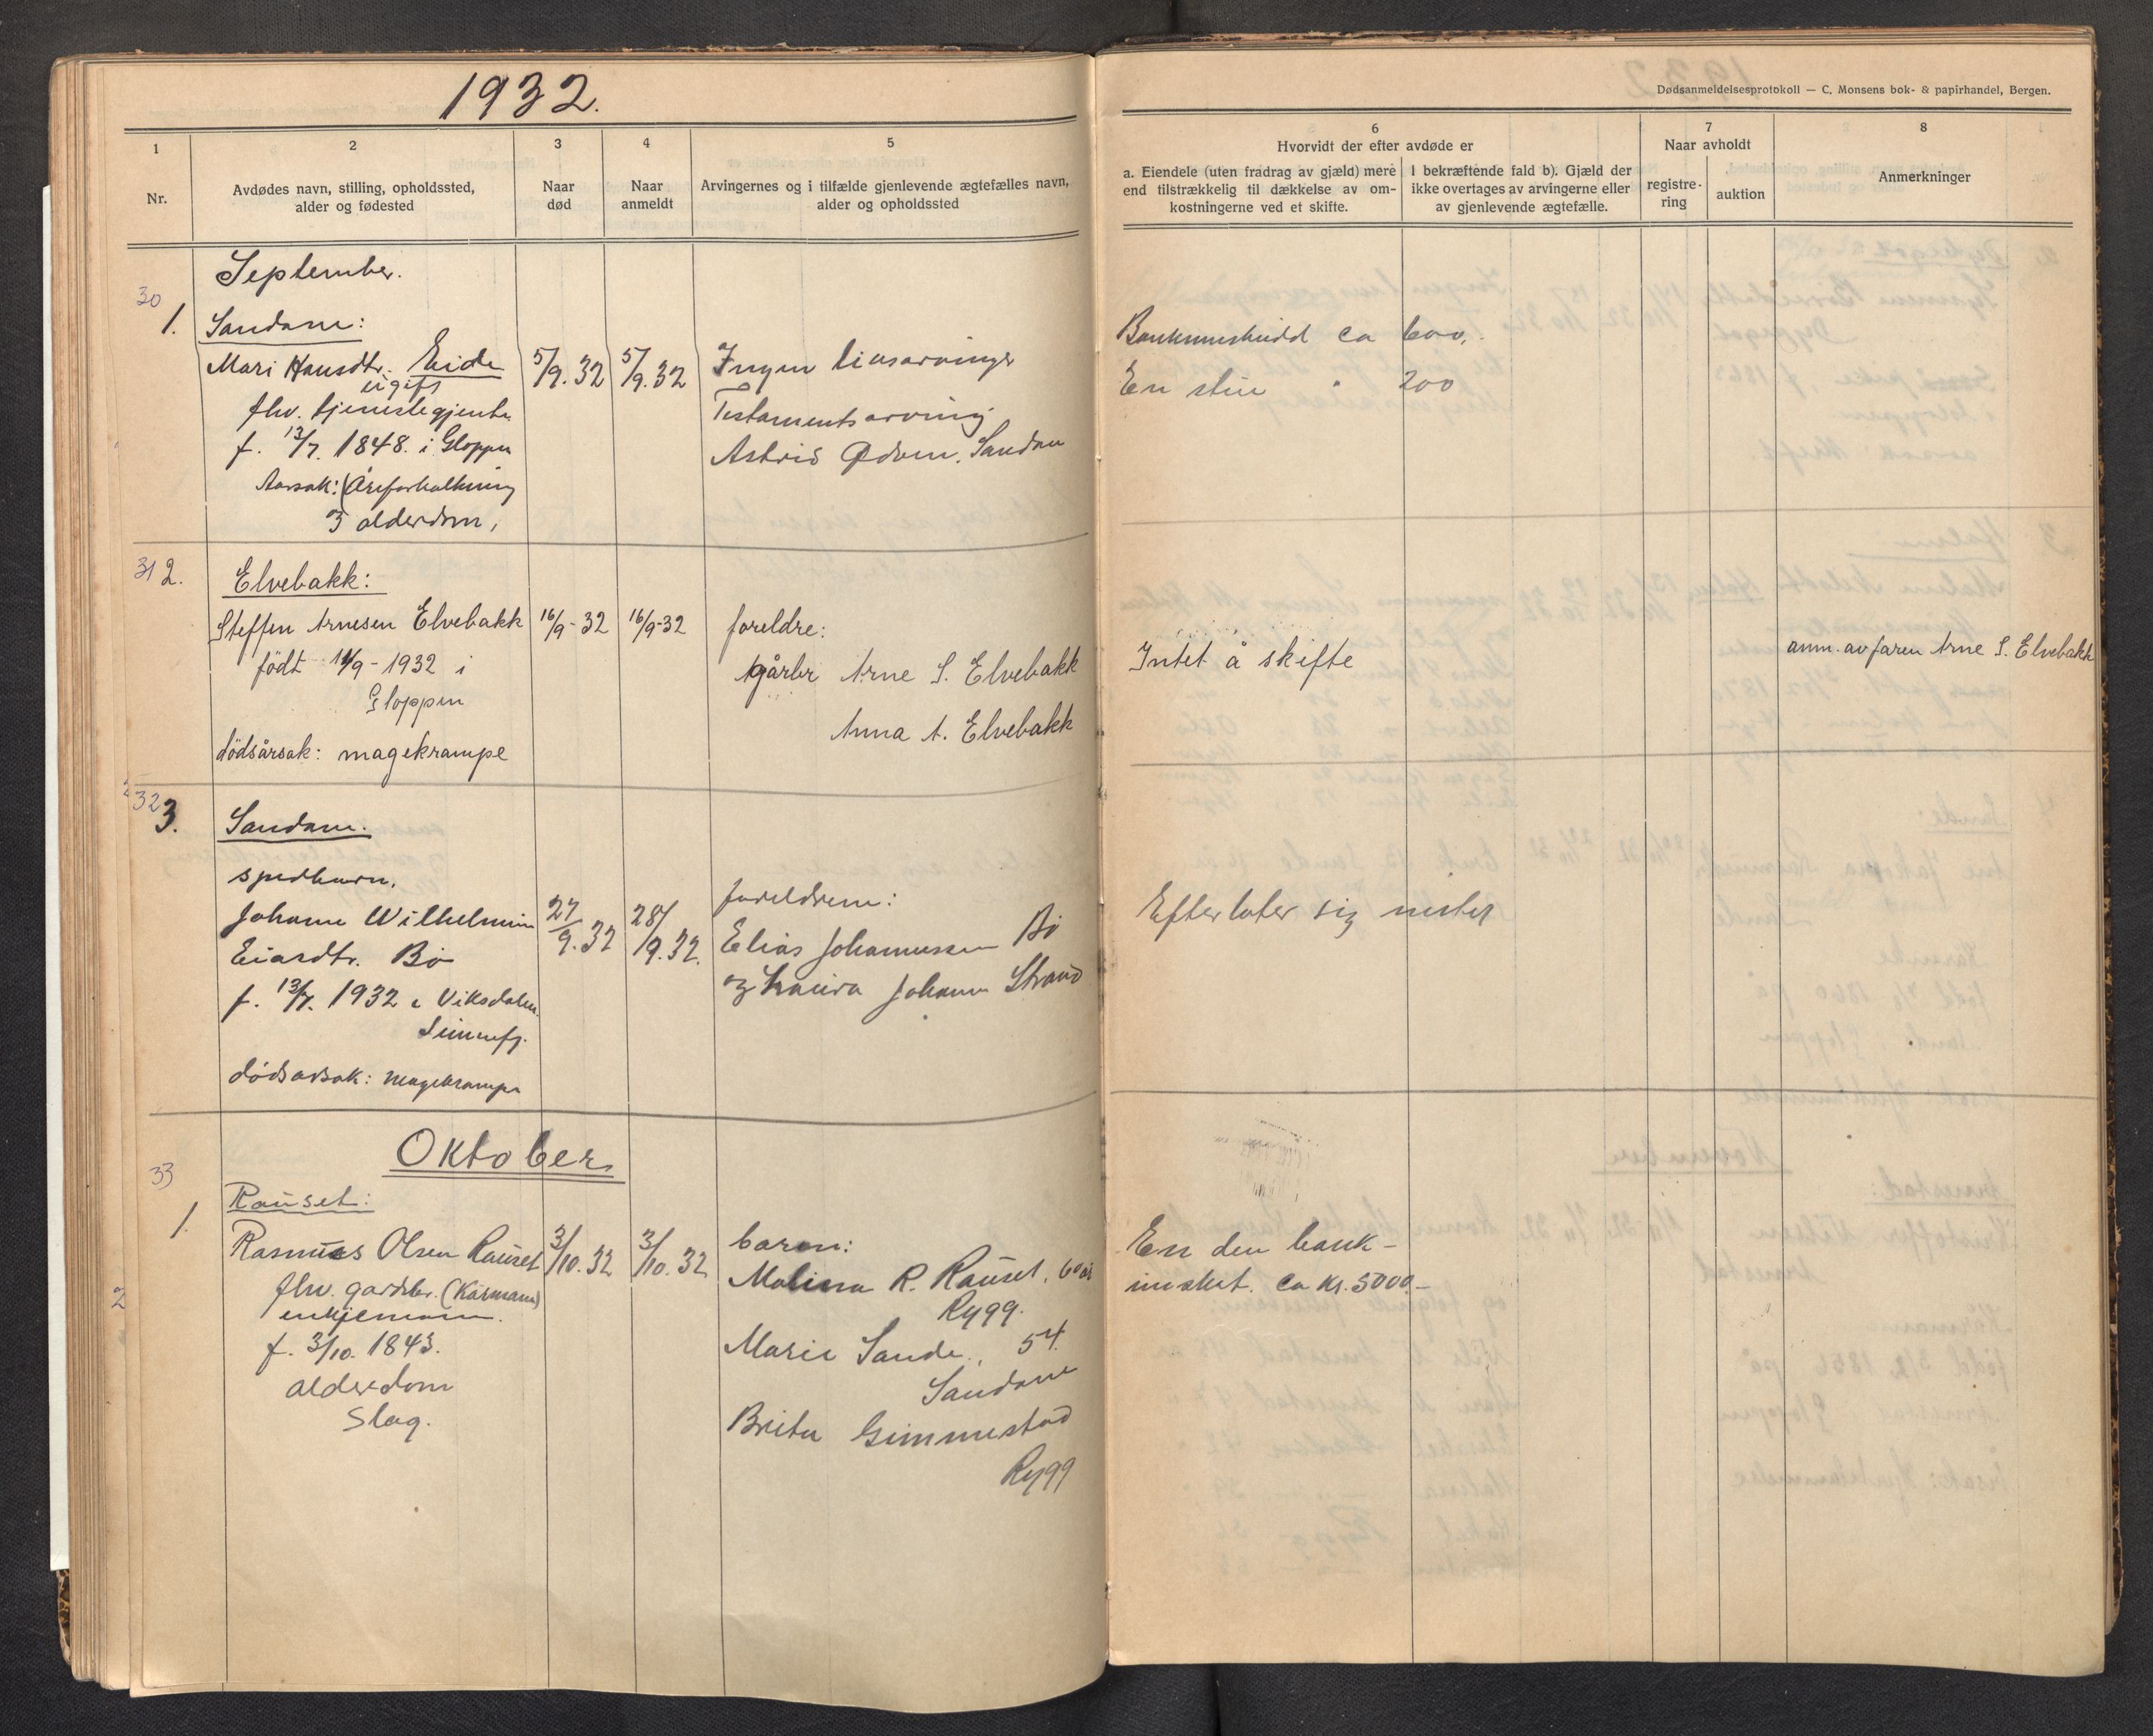 1932.
Dødsanmeldelsesprotokoll — C. Monsens bok- & papirhandel, Bergen.
1
Nr.
2
Avdødes navn, stilling, opholdssted,
alder og fødested
3
Naar
død
4
Naar
anmeldt
5
Arvingernes og i tilfælde gjenlevende ægtefælles navn,
alder og opholdssted
6
Hvorvidt der efter avdøde er
a. Eiendele (uten fradrag av gjæld) mere
end tilstrækkelig til dækkelse av om-
kostningerne ved et skifte.
I bekræftende fald b). Gjæld der
ikke overtages av arvingerne eller
av gjenlevende ægtefælle.
7
Naar avholdt
registre-
ring
auktion
8
Anmerkninger
September.
30
1.
Sandane:
Mari Hansdtr. Eide
ugift
fhv. tjenestegjente
f. 13/7. 1848. i Gloppen
Aarsak: (Åreforkalkning
og alderdom,
5/9. 32
5/9. 32
Ingen livsarvinger
Testamentsarving
Astrid Ødven, Sandane
ca 600,
En stue " 200
31 2.
Elvebakk:
Steffen Arnesen Elvebakk
født 14/9 - 1932 i
Gloppen
dödsårsak: magekrampe
16/9 - 32
16/9-32
foreldre:
gårbr Arne S. Elvebakk
Anna A. Elvebakk
Intet å skifte
anm. av faren Arne S. Elvebakk
32
3.
Sandane.
spedbarn.
Johanne Wilhelmine
Eiasdtr. Bø
f. 13/7. 1932 i Viksdalen
Sunnfj.
dødsårsak: magekrampe
27/9. 32
28/9. 32.
foreldrene:
Elias Johannessen Bø
og Laura Johanne Strand
Efterlater sig intet
Oktober
33
1.
Rauset:
Rasmus Olsen Rauset
fhv. gardbr. (Kårmann)
enkjemann.
f. 3/10. 1843.
alderdom
slag.
3/10. 32
3/10. 32
baren:
Malina R. Rauset, 60 år
Rygg.
Marie Sande, 54.
Sandane
Brita Gimmestad
Rygg
En den bank-
innskut. ca kr. 5000.-
2